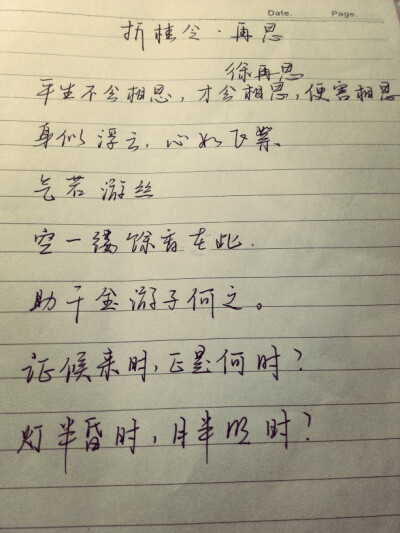 Date. Page.
折桂令·再思
徐再思
平生不会相思，才会相思，便害相思
身似浮云，心如飞絮、
气若游丝
空一缕馀香在此.
助千金游子何之。
证候来时，正是何时？
灯半昏时，月半明时？